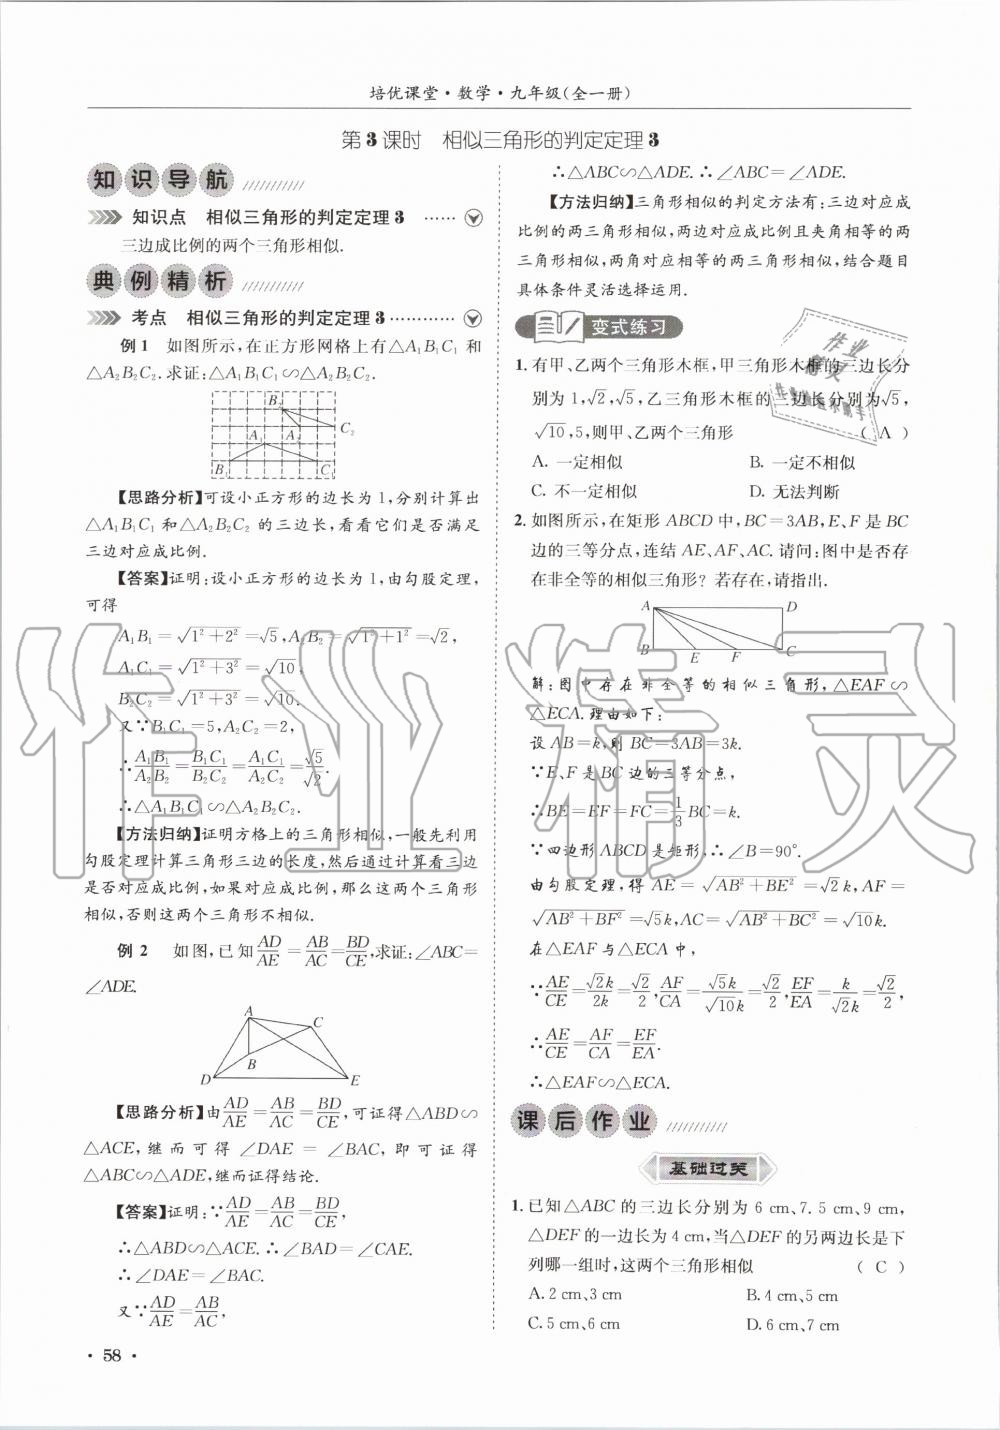 培优课堂·数学·九年级(全一册)
第3课时 相似三角形的判定定理3
知识导航
知识点 相似三角形的判定定理3 ……
三边成比例的两个三角形相似.
典例精析
考点 相似三角形的判定定理3…………
例1 如图所示,在正方形网格上有△A₁B₁C₁和
△A₂B₂C₂.求证:△A₁B₁C₁∽△A₂B₂C₂.
B₂
C₂
A₁ A₂
B₁ C₁
【思路分析】可设小正方形的边长为1,分别计算出
△A₁B₁C₁和△A₂B₂C₂的三边长,看看它们是否满足
三边对应成比例.
【答案】证明:设小正方形的边长为1,由勾股定理,
可得
A₁B₁=√(1²+2²)=√5,A₂B₂=√(1²+1²)=√2,
A₁C₁=√(1²+3²)=√10,
B₂C₂=√(1²+3²)=√10.
又∵B₁C₁=5,A₂C₂=2,
∴A₁B₁/A₂B₂=B₁C₁/B₂C₂=A₁C₁/A₂C₂=√5/√2.
∴△A₁B₁C₁∽△A₂B₂C₂.
【方法归纳】证明方格上的三角形相似,一般先利用
勾股定理计算三角形三边的长度,然后通过计算看三边
是否对应成比例,如果对应成比例,那么这两个三角形
相似,否则这两个三角形不相似.
例2 如图,已知AD/AE=AB/AC=BD/CE,求证:∠ABC=
∠ADE.
A
C
B
D E
【思路分析】由AD/AE=AB/AC=BD/CE,可证得△ABD∽
△ACE,继而可得∠DAE=∠BAC,即可证得
△ABC∽△ADE,继而证得结论.
【答案】证明:∵AD/AE=AB/AC=BD/CE,
∴△ABD∽△ACE.∴∠BAD=∠CAE.
∴∠DAE=∠BAC.
又∵AD/AE=AB/AC,
·58·
∴△ABC∽△ADE.∴∠ABC=∠ADE.
【方法归纳】三角形相似的判定方法有:三边对应成
比例的两三角形相似,两边对应成比例且夹角相等的两
三角形相似,两角对应相等的两三角形相似,结合题目
具体条件灵活选择运用.
变式练习
1.有甲、乙两个三角形木框,甲三角形木框的三边长分
别为1,√2,√5,乙三角形木框的三边长分别为√5,
√10,5,则甲、乙两个三角形 ( A )
A. 一定相似 B. 一定不相似
C. 不一定相似 D. 无法判断
2.如图所示,在矩形ABCD中,BC=3AB,E、F是BC
边的三等分点,连结AE、AF、AC.请问:图中是否存
在非全等的相似三角形?若存在,请指出.
A D
B E F C
解:图中存在非全等的相似三角形,△EAF∽
△ECA.理由如下:
设AB=k,则BC=3AB=3k.
∵E、F是BC边的三等分点,
∴BE=EF=FC=1/3BC=k.
∵四边形ABCD是矩形,∴∠B=90°.
由勾股定理,得AE=√(AB²+BE²)=√2k,AF=
√(AB²+BF²)=√5k,AC=√(AB²+BC²)=√10k.
在△EAF与△ECA中,
∵AE/CE=√2k/2k=√2/2,AF/CA=√5k/√10k=√2/2,EF/EA=k/√2k=√2/2,
∴AE/CE=AF/CA=EF/EA.
∴△EAF∽△ECA.
课后作业
基础过关
1.已知△ABC的三边长分别为6 cm、7.5 cm、9 cm,
△DEF的一边长为4 cm,当△DEF的另两边长是下
列哪一组时,这两个三角形相似 ( C )
A.2 cm、3 cm B.4 cm、5 cm
C.5 cm、6 cm D.6 cm、7 cm
作业精灵
作业精灵